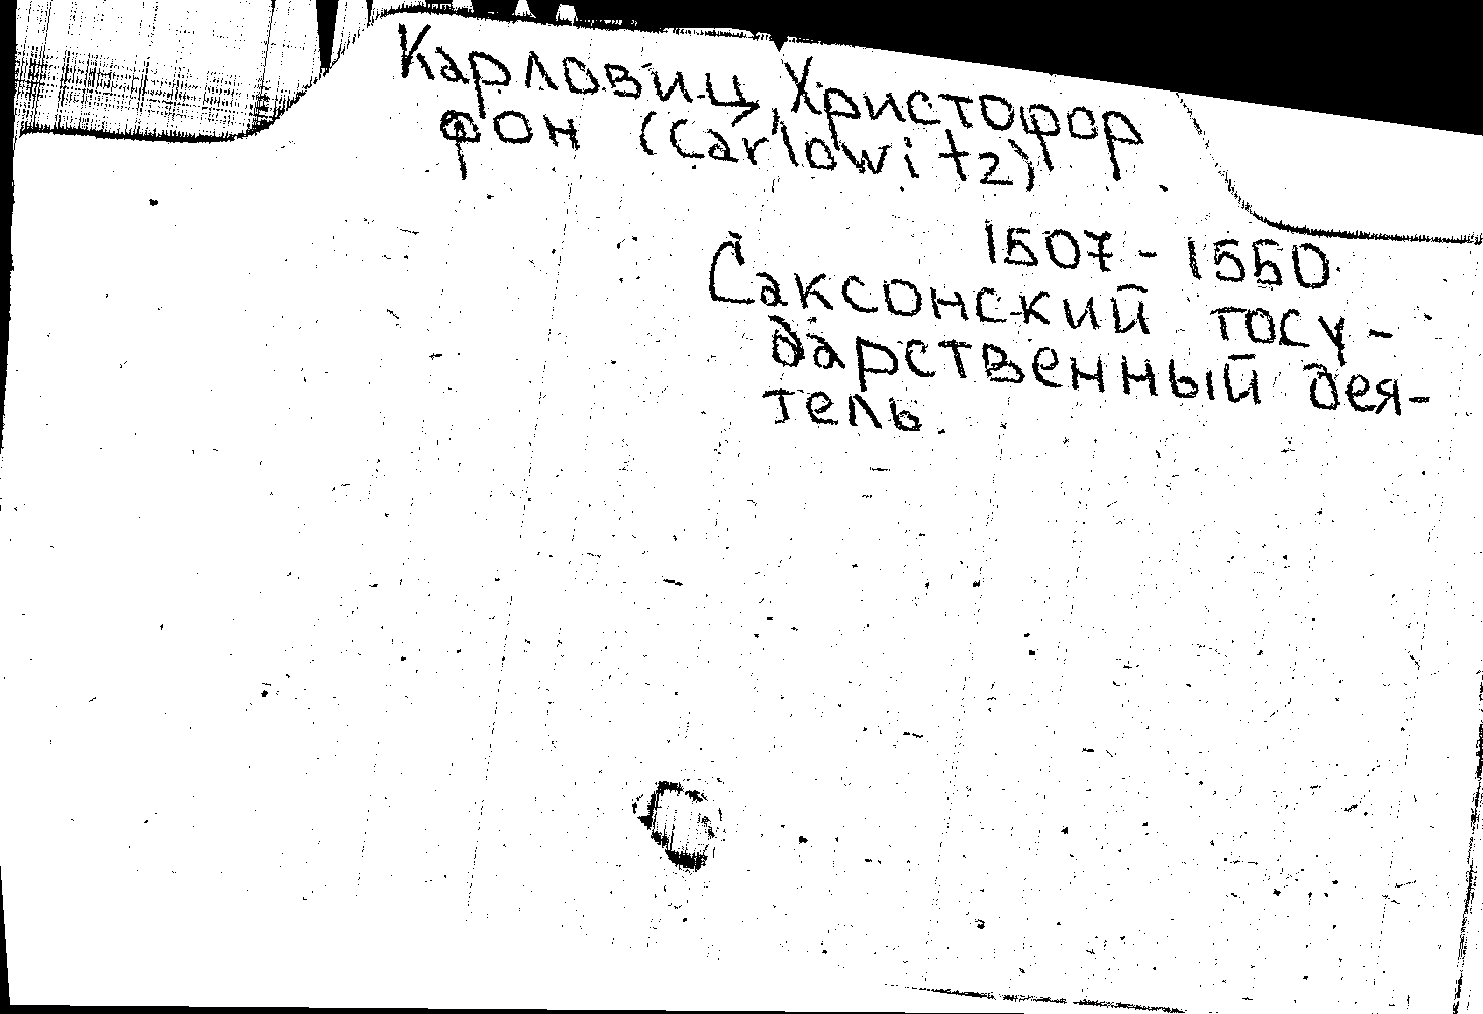 Карловиц, Христофор
фон (Carlowitz)
1507 - 1550
Саксонский госу-
дарственный дея-
тель.